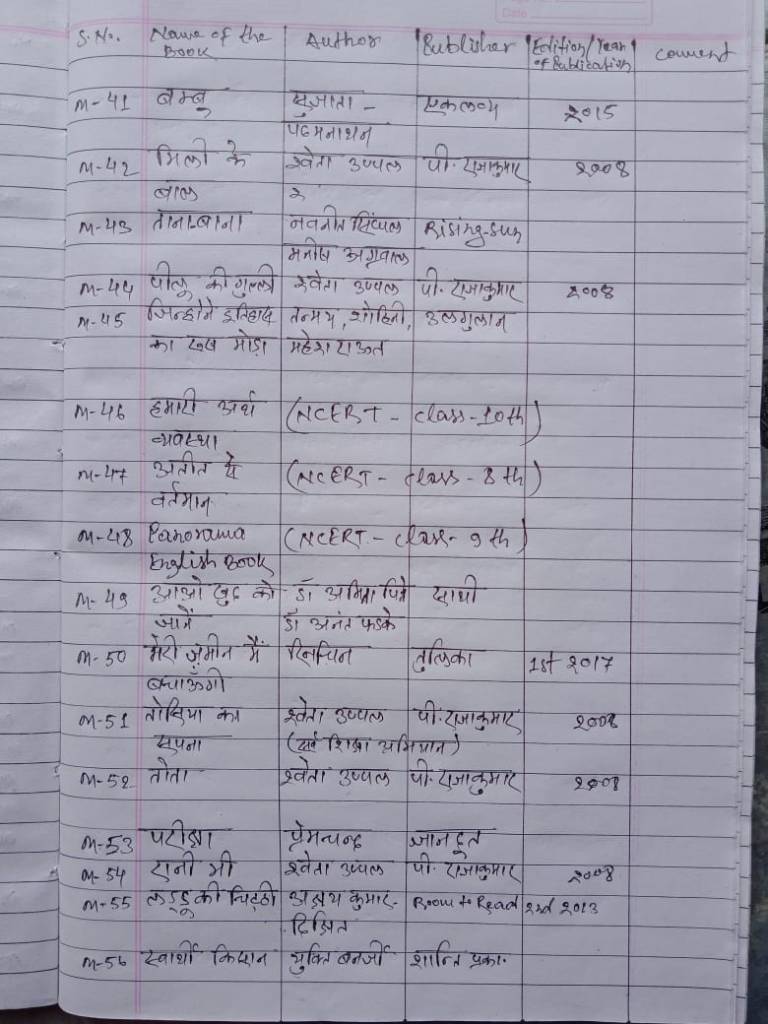 Date
S.No. Name of the Author Publisher Edition/Year comment
Book of Publication
M-41 बम्बू सुजाता - एकलव्य 2015
पदमनाथन
M-42 मिली के श्वेता उप्पल पी. राजाकुमार 2008
बाल
M-43 ताना-बाना नवनीत सिंघल Rising-Sun
मनीष अग्रवाल
M-44 पीलू की गुल्ली श्वेता उप्पल पी. राजाकुमार 2008
M-45 जिन्होंने इतिहास तन्मय, शोहिनी, उलगुलान
का रुख मोड़ा महेश राऊत
M-46 हमारी अर्थ (NCERT - class-10th)
व्यवस्था
M-47 अतीत से (NCERT - class - 8th)
वर्तमान
M-48 Panorama (NCERT - class- 9th)
English Book
M-49 आओ खुद को डॉ अमिता पित्रे साथी
जानें डॉ अनंत फडके
M-50 मेरी ज़मीन मैं रिनचिन तुलिका 1st 2017
बचाऊँगी
M-51 तोसिया का श्वेता उप्पल पी. राजाकुमार 2008
सपना (सर्व शिक्षा अभियान)
M-52 तोता श्वेता उप्पल पी. राजाकुमार 2008
M-53 परीक्षा प्रेमचन्द्र ज्ञानदूत
M-54 रानी भी श्वेता उप्पल पी. राजाकुमार 2008
M-55 लड्डू की चिट्ठी अक्षय कुमार- Room to Read 2nd 2013
दिक्षित
M-56 स्वार्थी किसान युक्ति बनर्जी शान्ति प्रका.